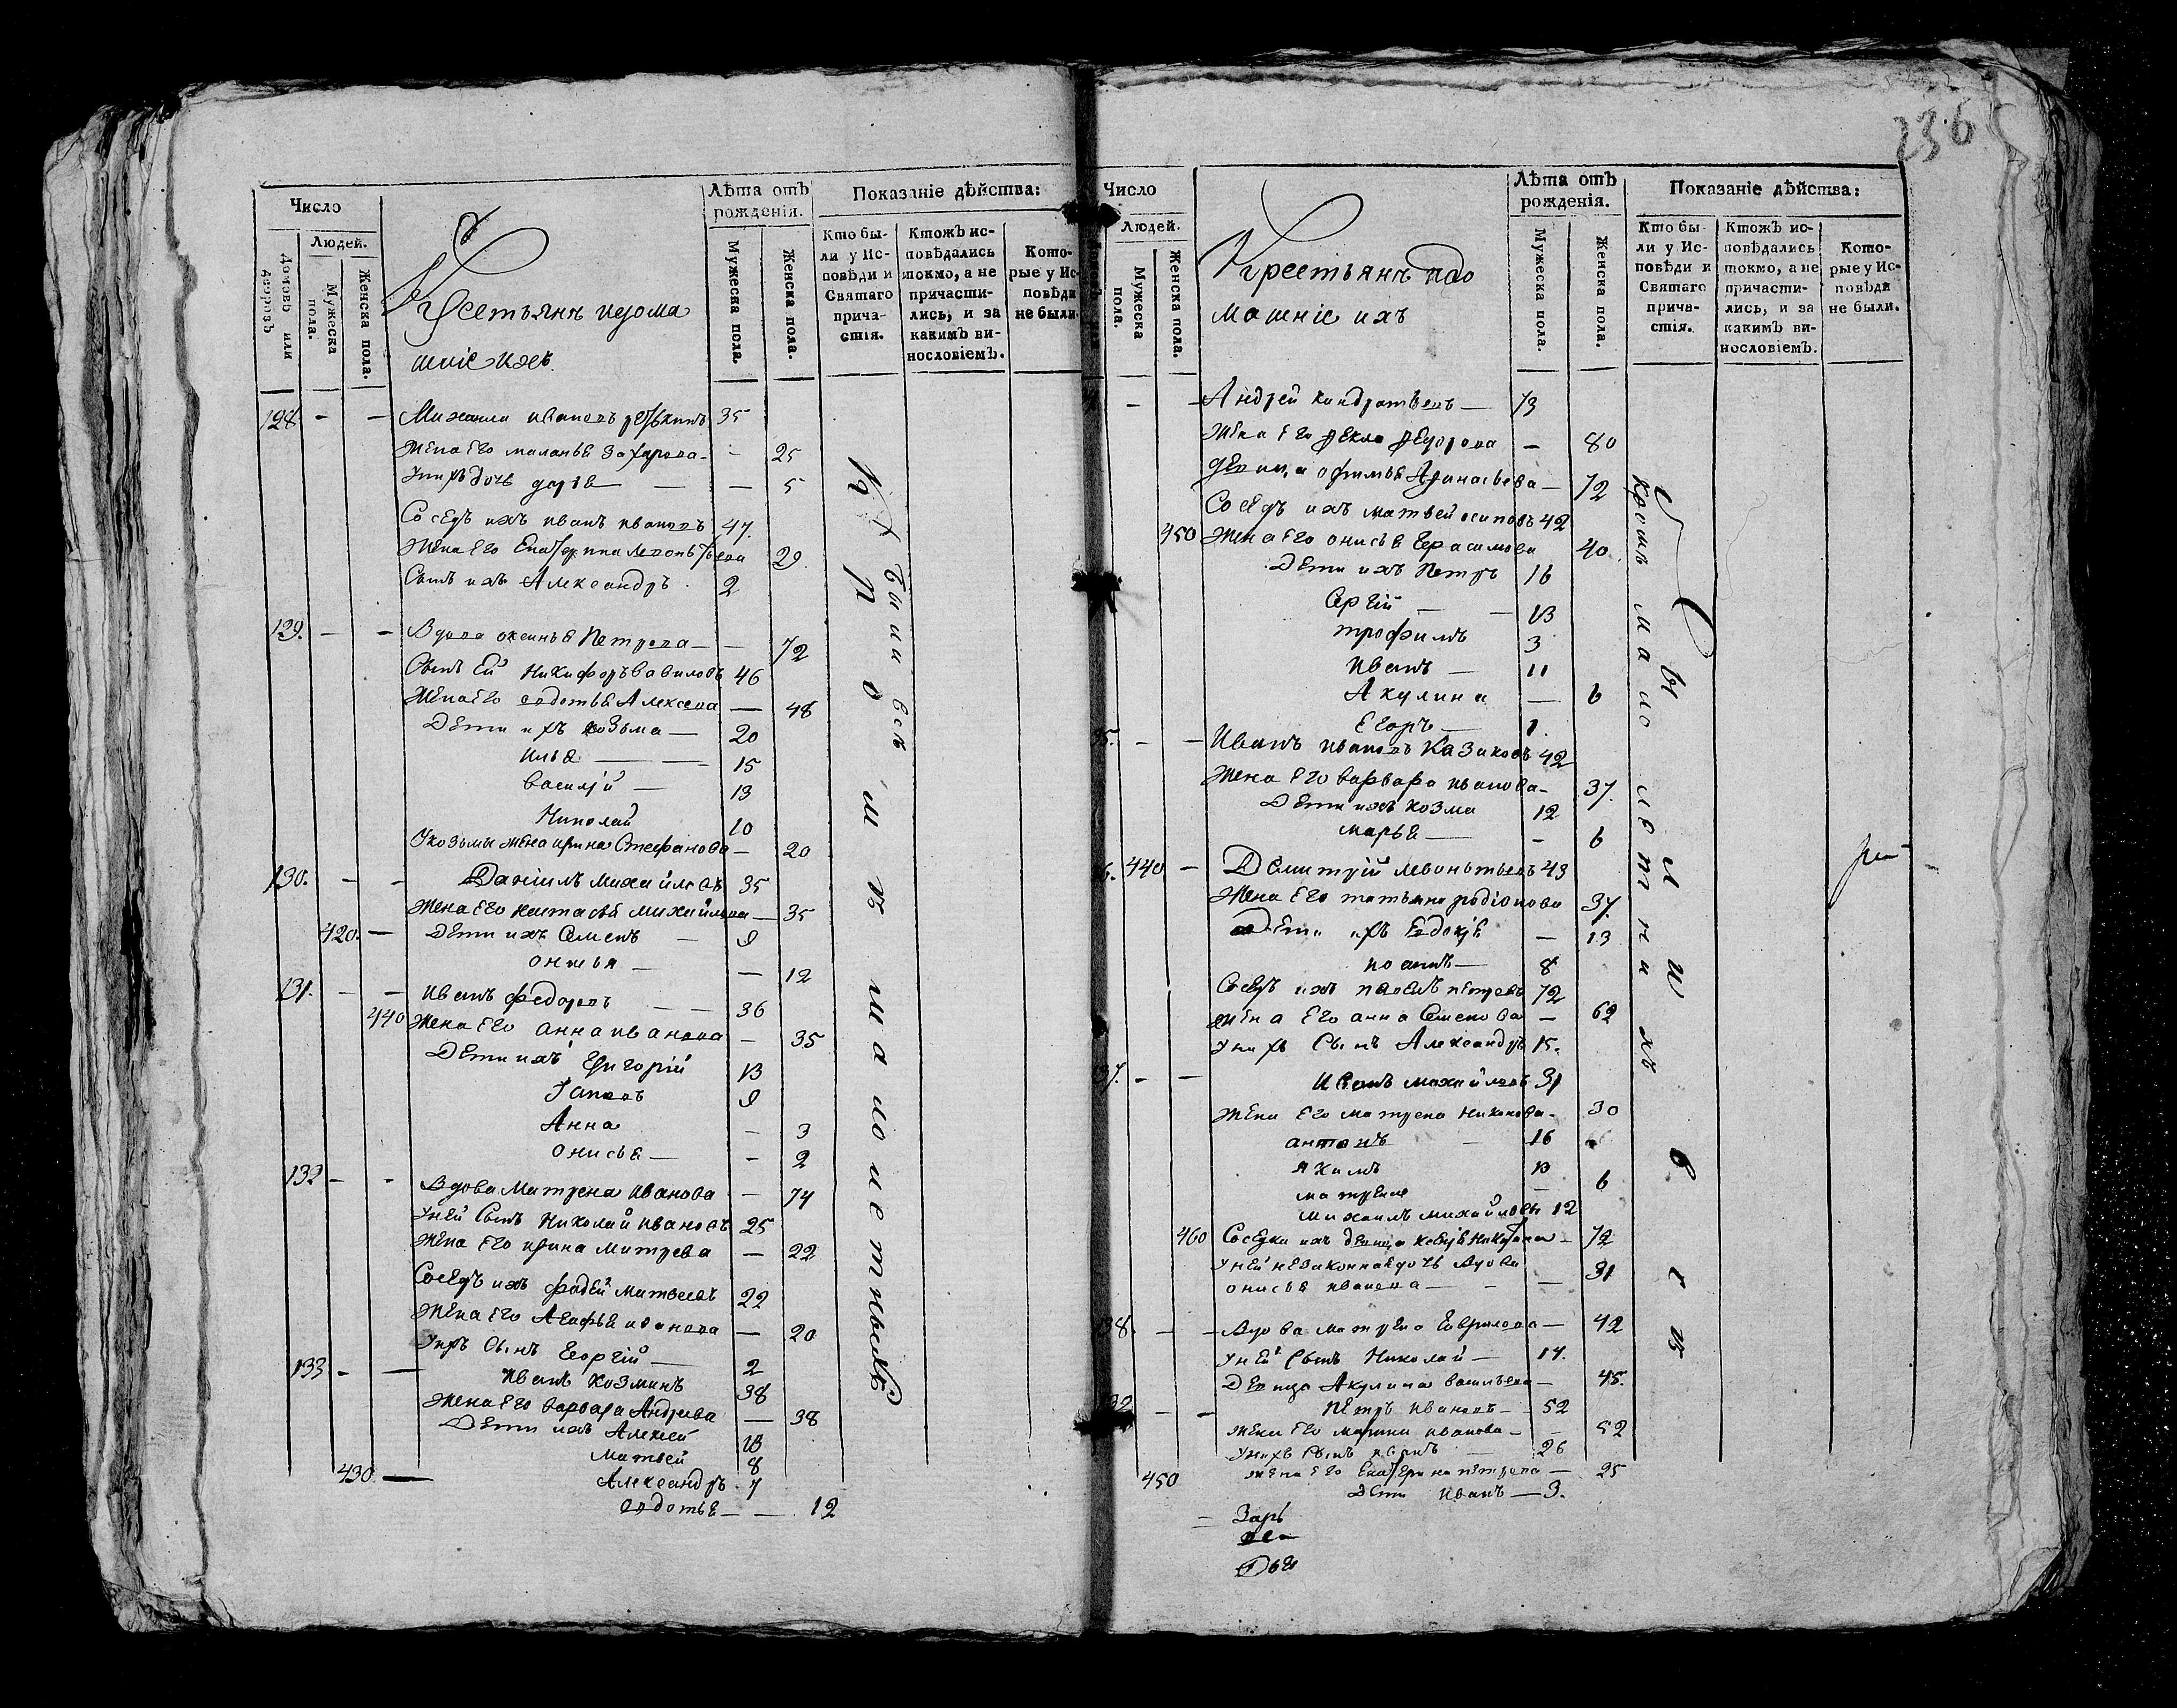 236
Число
Людей.
Домовъ или дворовъ
Мужеска пола.
Женска пола.
Крестьянъ идома
шніе ихъ
Лѣта отъ рожденія.
Мужеска пола.
Женска пола.
Показаніе дѣйства:
Кто бы-
ли у Ис-
повѣди и
Святаго
прича-
стія.
Ктожъ ис-
повѣдались
токмо, а не
причасти-
лись, и за
какимъ ви-
нословіемъ.
Кото-
рые у Ис-
повѣди
не были.
128 - - Михаила ивановъ 35
Жена Его маланья Захарова - - 25
унихъ дочь дарья — — 5
Соседъ ихъ иванъ ивановъ 47.
Жена Его Екатерина Леонтьева 29.
Сынъ ихъ Александръ 2
129. - - Вдова оксинья Петрова - - 72
Сынъ Ей Никифоръ вавиловъ 46
Жена Его евдотья Алексеева — 48
Дети ихъ козьма — 20
илья — 15
василій — 13
Николай 10
Укозьмы жена ирина Стефанова - 20
130. - - Даніилъ михайловъ 35
Жена Его настасья михайлова — 35
420. — Дети ихъ Семенъ - 9
онисья — — 12
131. - - иванъ федоровъ — 36
440 Жена Его анна иванова - 35
Дети ихъ Григорій 13
Іаковъ 9
Анна - 3
онисья — - 2
132 - - Вдова Матрена иванова - 74
уней Сынъ Николай ивановъ 25
Жена Его ирина митрева — 22
Соседъ ихъ фадей матвеевъ 22
Жена Его Агафья иванова — 20
унихъ Сынъ Георгій — 2
133 - — иванъ козминъ 38
Жена Его варвара Андреева — 38
Дети ихъ Алексей 13
матвей 8
430. — Александръ 7
евдотья — — 12
были всѣ
кромѣ малолетныхъ
Число
Людей.
Мужеска пола.
Женска пола.
Крестьянъ идо
машніе ихъ
Лѣта отъ рожденія.
Мужеска пола.
Женска пола.
Показаніе дѣйства:
Кто бы-
ли у Ис-
повѣди и
Святаго
прича-
стія.
Ктожъ ис-
повѣдались
токмо, а не
причасти-
лись, и за
какимъ ви-
нословіемъ.
Кото-
рые у Ис-
повѣди
не были.
- - Андрей кондратьевъ — 73
Жена Его фекла федорова - 80
девица офимья Афанасьева — 72
Соседъ ихъ матвей осиповъ 42
450 Жена Его онисья Герасимова 40
Дети ихъ Петръ 16
Сергій — 13
трофимъ 3
иванъ — 11
Акулина — 6
Егоръ — 1.
35. - - Иванъ ивановъ Казаковъ 42
Жена Его варвара иванова - 37.
Дети ихъ козма 12
марья — - 6
36. 440 - Димитрій леонтьевъ 43
Жена Его татьяна родіонова 37.
Дети ихъ Евдокія — 13
иоанъ — 8
Соседъ ихъ павелъ петровъ 72
жена Его анна Семенова — 62
унихъ Сынъ Александръ 15.
37. - - Иванъ михайловъ 31
Жена Его матрена никонова - 30
антонъ - 16
якимъ 13
матрена - 6
михаилъ михайловъ 12
460 Соседка ихъ девица - 72
уней незаконная дочь вдова
онисья иванова — - — 31
38. - - Вдова матрена Гаврилова — 42
уней Сынъ Николай — 14.
Девица Акулина васильева — 45.
39 - - петръ ивановъ — 52
жена Его марина иванова - 52
унихъ Сынъ иванъ — 26
450 жена Его Екатерина петрова — 25
Дети иванъ — 3.
были всѣ
кромѣ малолетнихъ